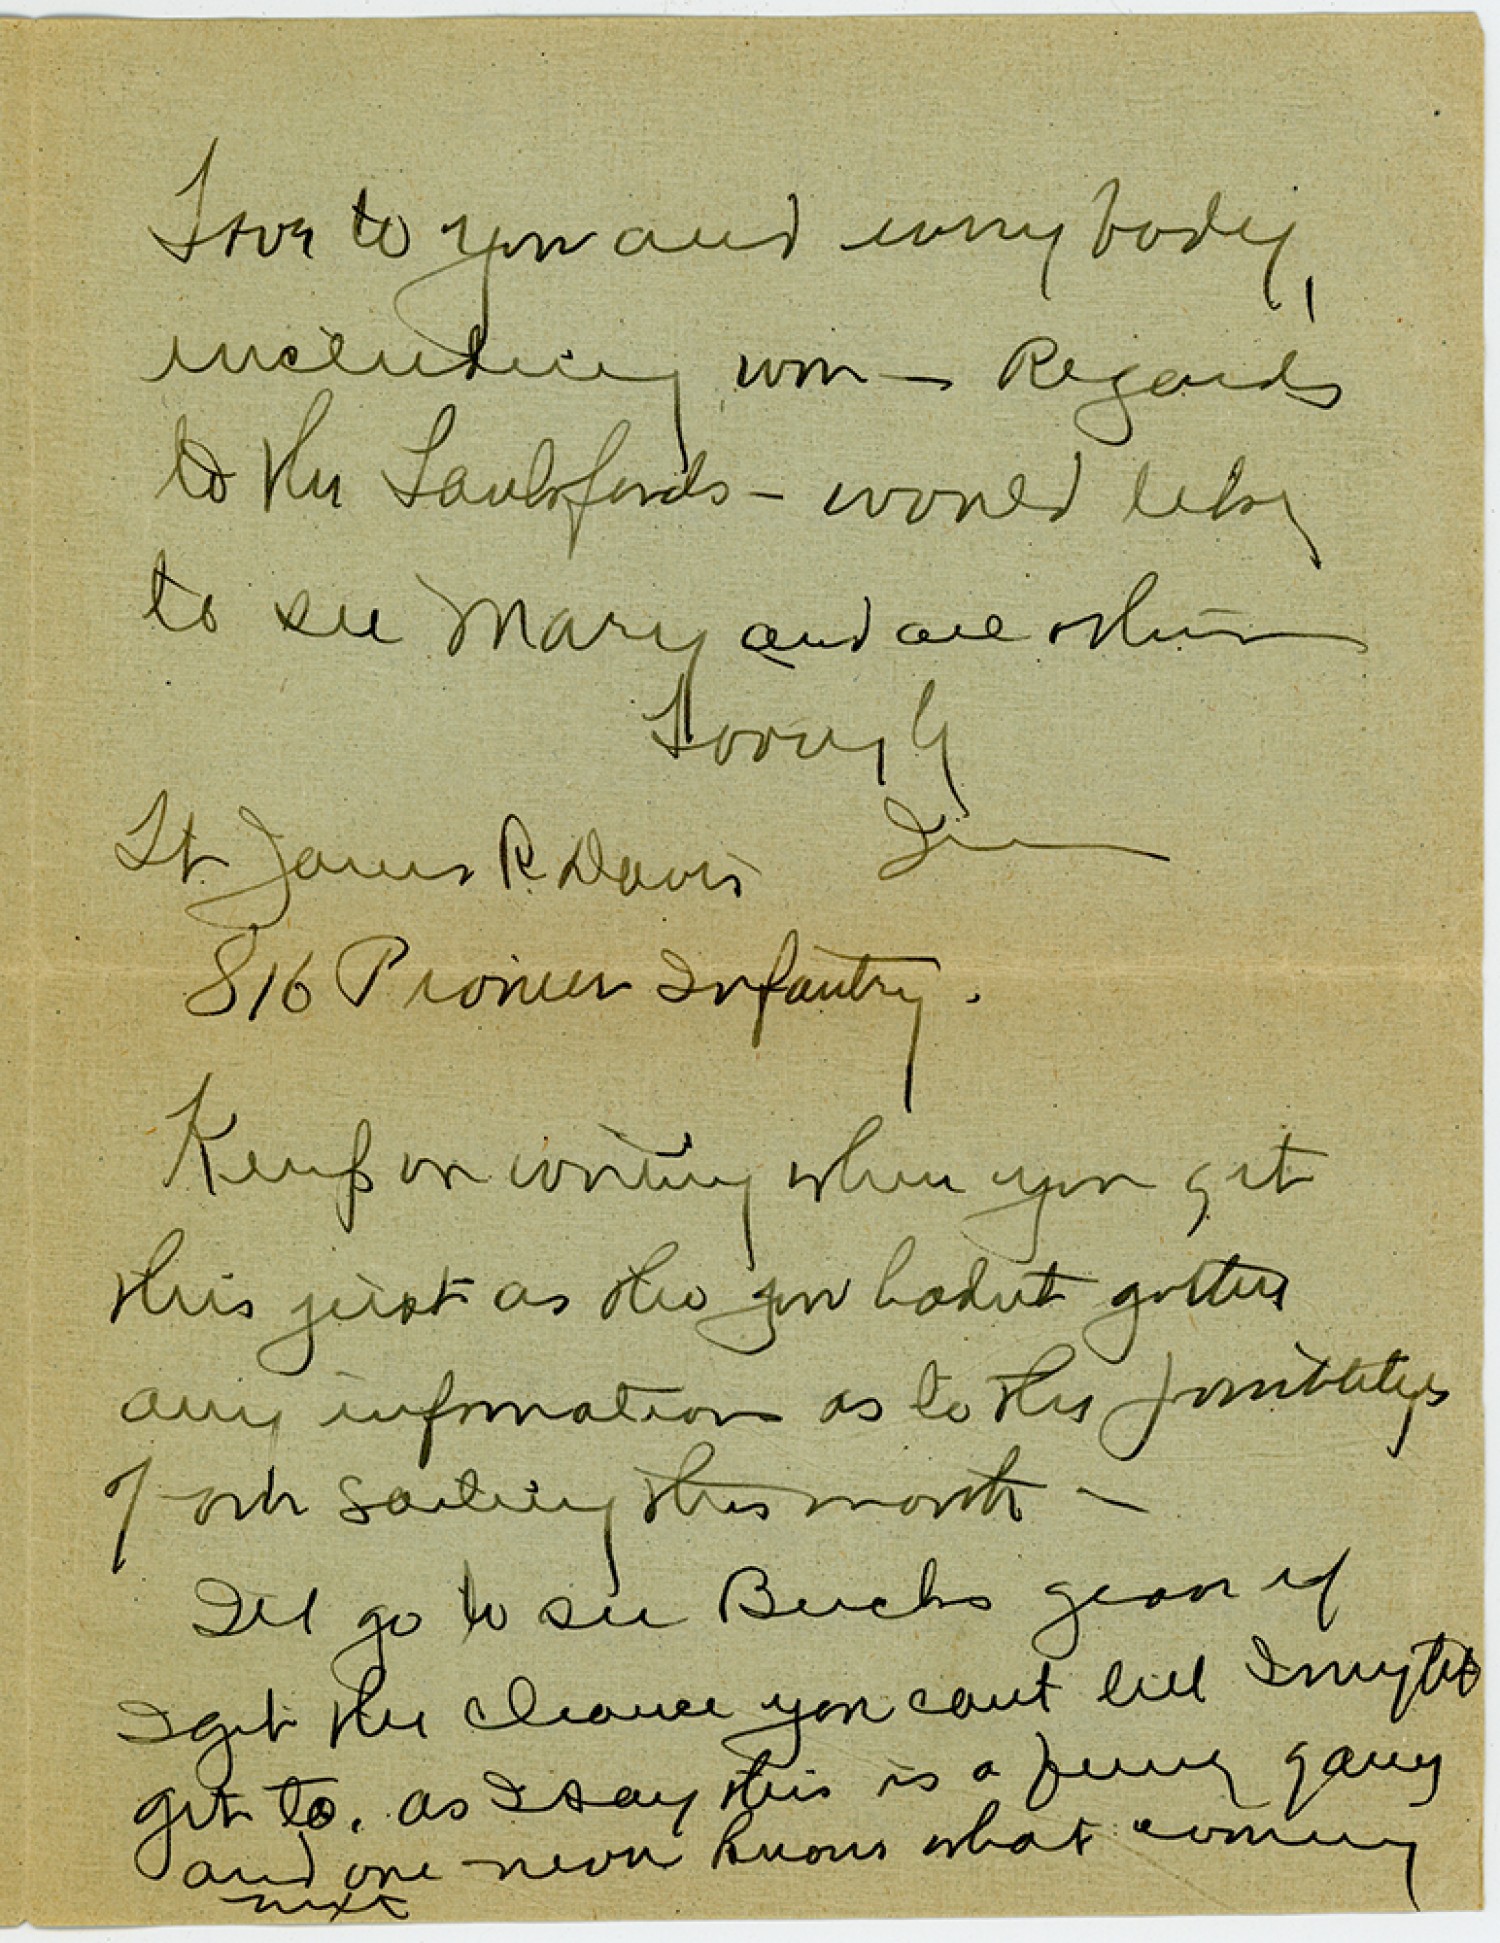 Love to you and everybody,
including Wm — Regards
to the Lankfords — would like
to see Mary and all others
Lovingly
Jim
Lt James R Davis
816 Pioneer Infantry.
Keep on writing when you get
this just as tho you hadn't gotten
any information as to the possibilitys
of our sailing this month —
I'll go to see Bucks grave if
I get the chance you cant tell I might
get to. as I say this is a funny game
and one never knows what coming
next